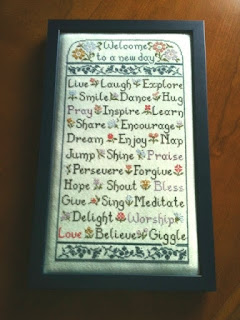 Welcome
to a new day
Live Laugh Explore
Smile Dance Hug
Pray Inspire Learn
Share Encourage
Dream Enjoy Nap
Jump Shine Praise
Persevere Forgive
Hope Shout Bless
Give Sing Meditate
Delight Worship
Love Believe Giggle